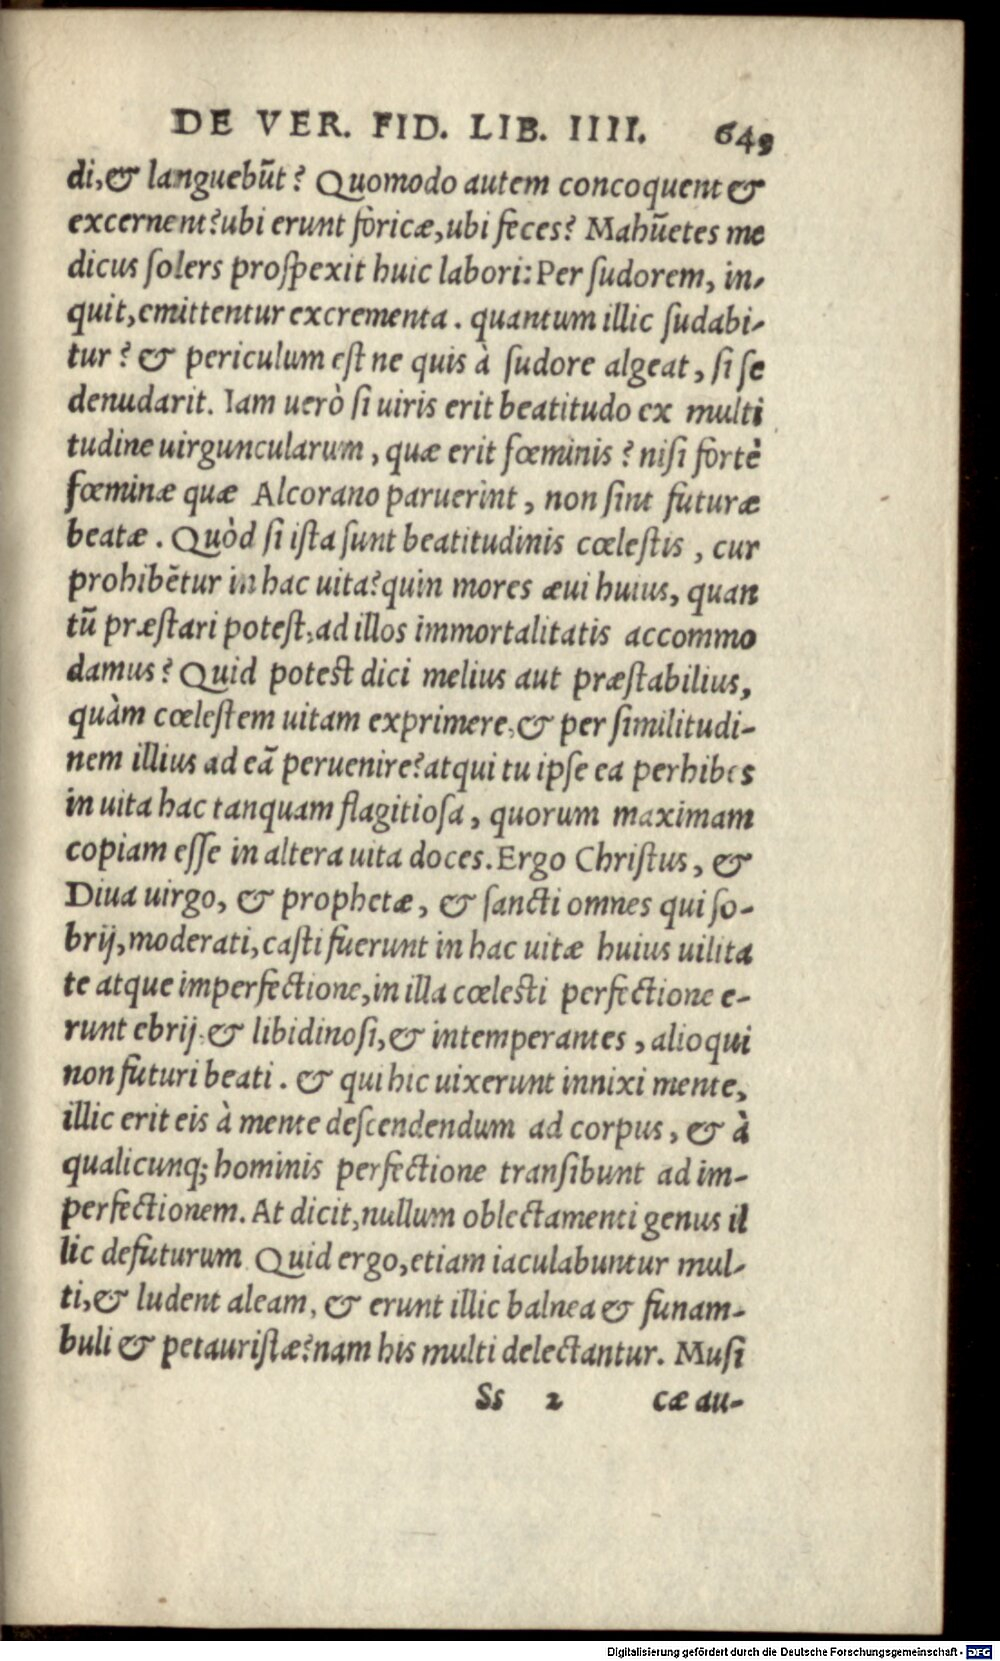 DE VER. FID. LIB. IIII. 649
di,& languebūt? Quomodo autem concoquent &
excernent? ubi erunt foricæ, ubi feces? Mahūetes me
dicus solers prospexit huic labori: Per sudorem, in-
quit, emittentur excrementa. quantum illic sudabi-
tur? & periculum est ne quis à sudore algeat, si se
denudarit. Iam uerò si uiris erit beatitudo ex multi
tudine uirguncularum, quæ erit fœminis? nisi fortè
fœminæ quæ Alcorano paruerint, non sint futuræ
beatæ. Quòd si ista sunt beatitudinis cœlestis, cur
prohibētur in hac uita? quin mores æui huius, quan
tū præstari potest, ad illos immortalitatis accommo
damus? Quid potest dici melius aut præstabilius,
quàm cœlestem uitam exprimere, & per similitudi-
nem illius ad eā peruenire? atqui tu ipse ea perhibes
in uita hac tanquam flagitiosa, quorum maximam
copiam esse in altera uita doces. Ergo Christus, &
Diua uirgo, & prophetæ, & sancti omnes qui so-
brij, moderati, casti fuerunt in hac uitæ huius uilita
te atque imperfectione, in illa cœlesti perfectione e-
runt ebrij, & libidinosi, & intemperantes, alioqui
non futuri beati. & qui hic uixerunt innixi mente,
illic erit eis à mente descendendum ad corpus, & à
qualicunq; hominis perfectione transibunt ad im-
perfectionem. At dicit, nullum oblectamenti genus il
lic defuturum Quid ergo, etiam iaculabuntur mul-
ti, & ludent aleam, & erunt illic balnea & funam-
buli & petauristæ? nam his multi delectantur. Musi
Ss 2 cæ au-
Digitalisierung gefördert durch die Deutsche Forschungsgemeinschaft - DFG